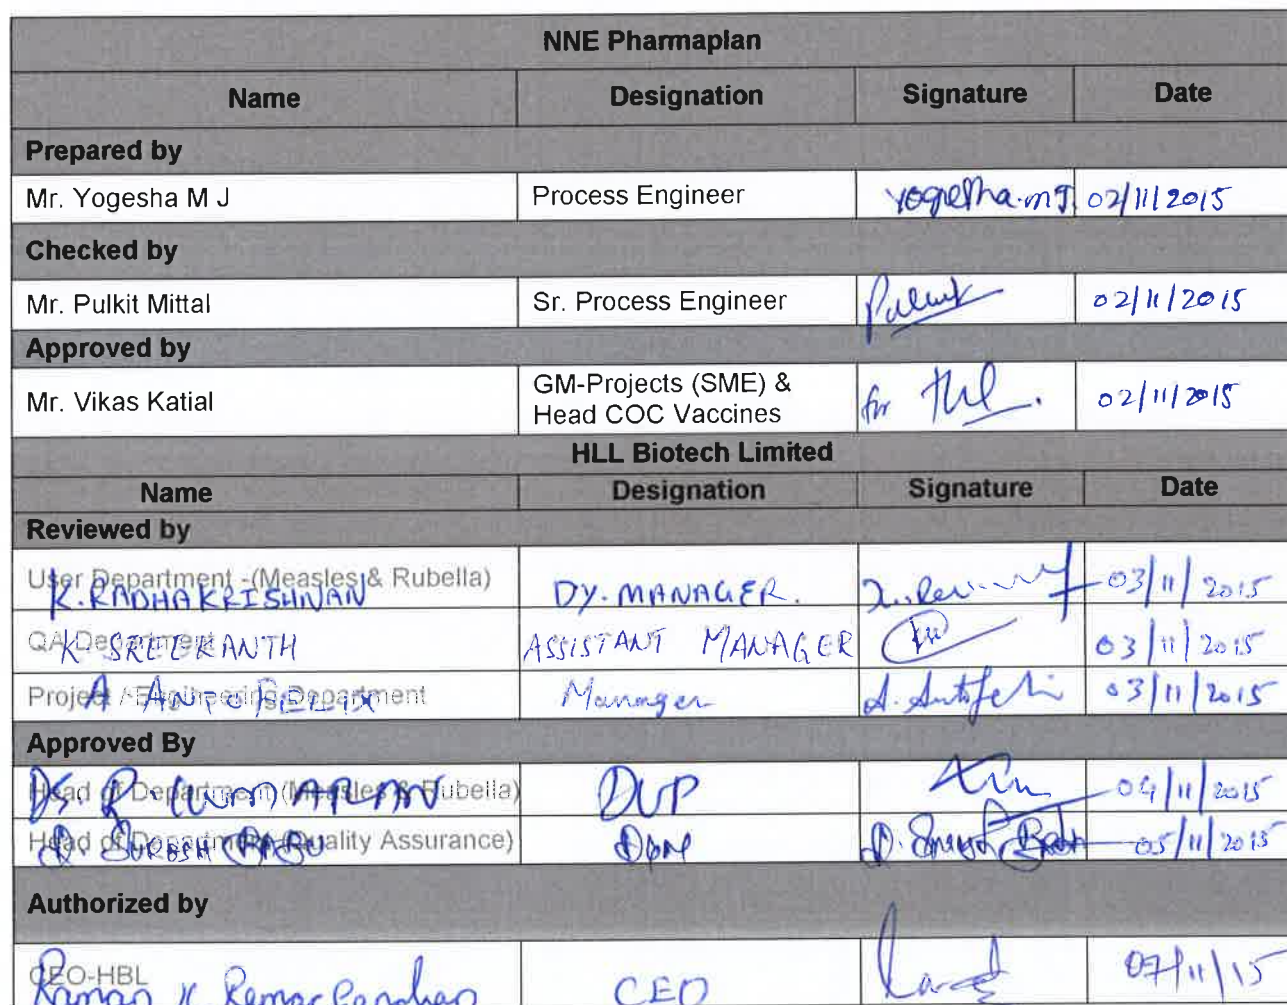 NNE Pharmaplan
Name Designation Signature Date
Prepared by
Mr. Yogesha M J Process Engineer Yogesha.M J 02/11/2015
Checked by
Mr. Pulkit Mittal Sr. Process Engineer 02/11/2015
Approved by
Mr. Vikas Katial GM-Projects (SME) & for 02/11/2015
Head COC Vaccines
HLL Biotech Limited
Name Designation Signature Date
Reviewed by
User Department -(Measles & Rubella)
K. RADHAKRISHNAN DY. MANAGER. 03/11/2015
QA Department
K. SREEKANTH ASSISTANT MANAGER 03/11/2015
Project / Engineering Department
A. ANTO FELIX Manager A. Antofeli 03/11/2015
Approved By
Head of Department (Measles & Rubella)
Dr. R. 04/11/2015
Head of Department (Quality Assurance)
D. SURESH BABU D. Suresh Babu 05/11/2015
Authorized by
CEO-HBL
CEO 07/11/15